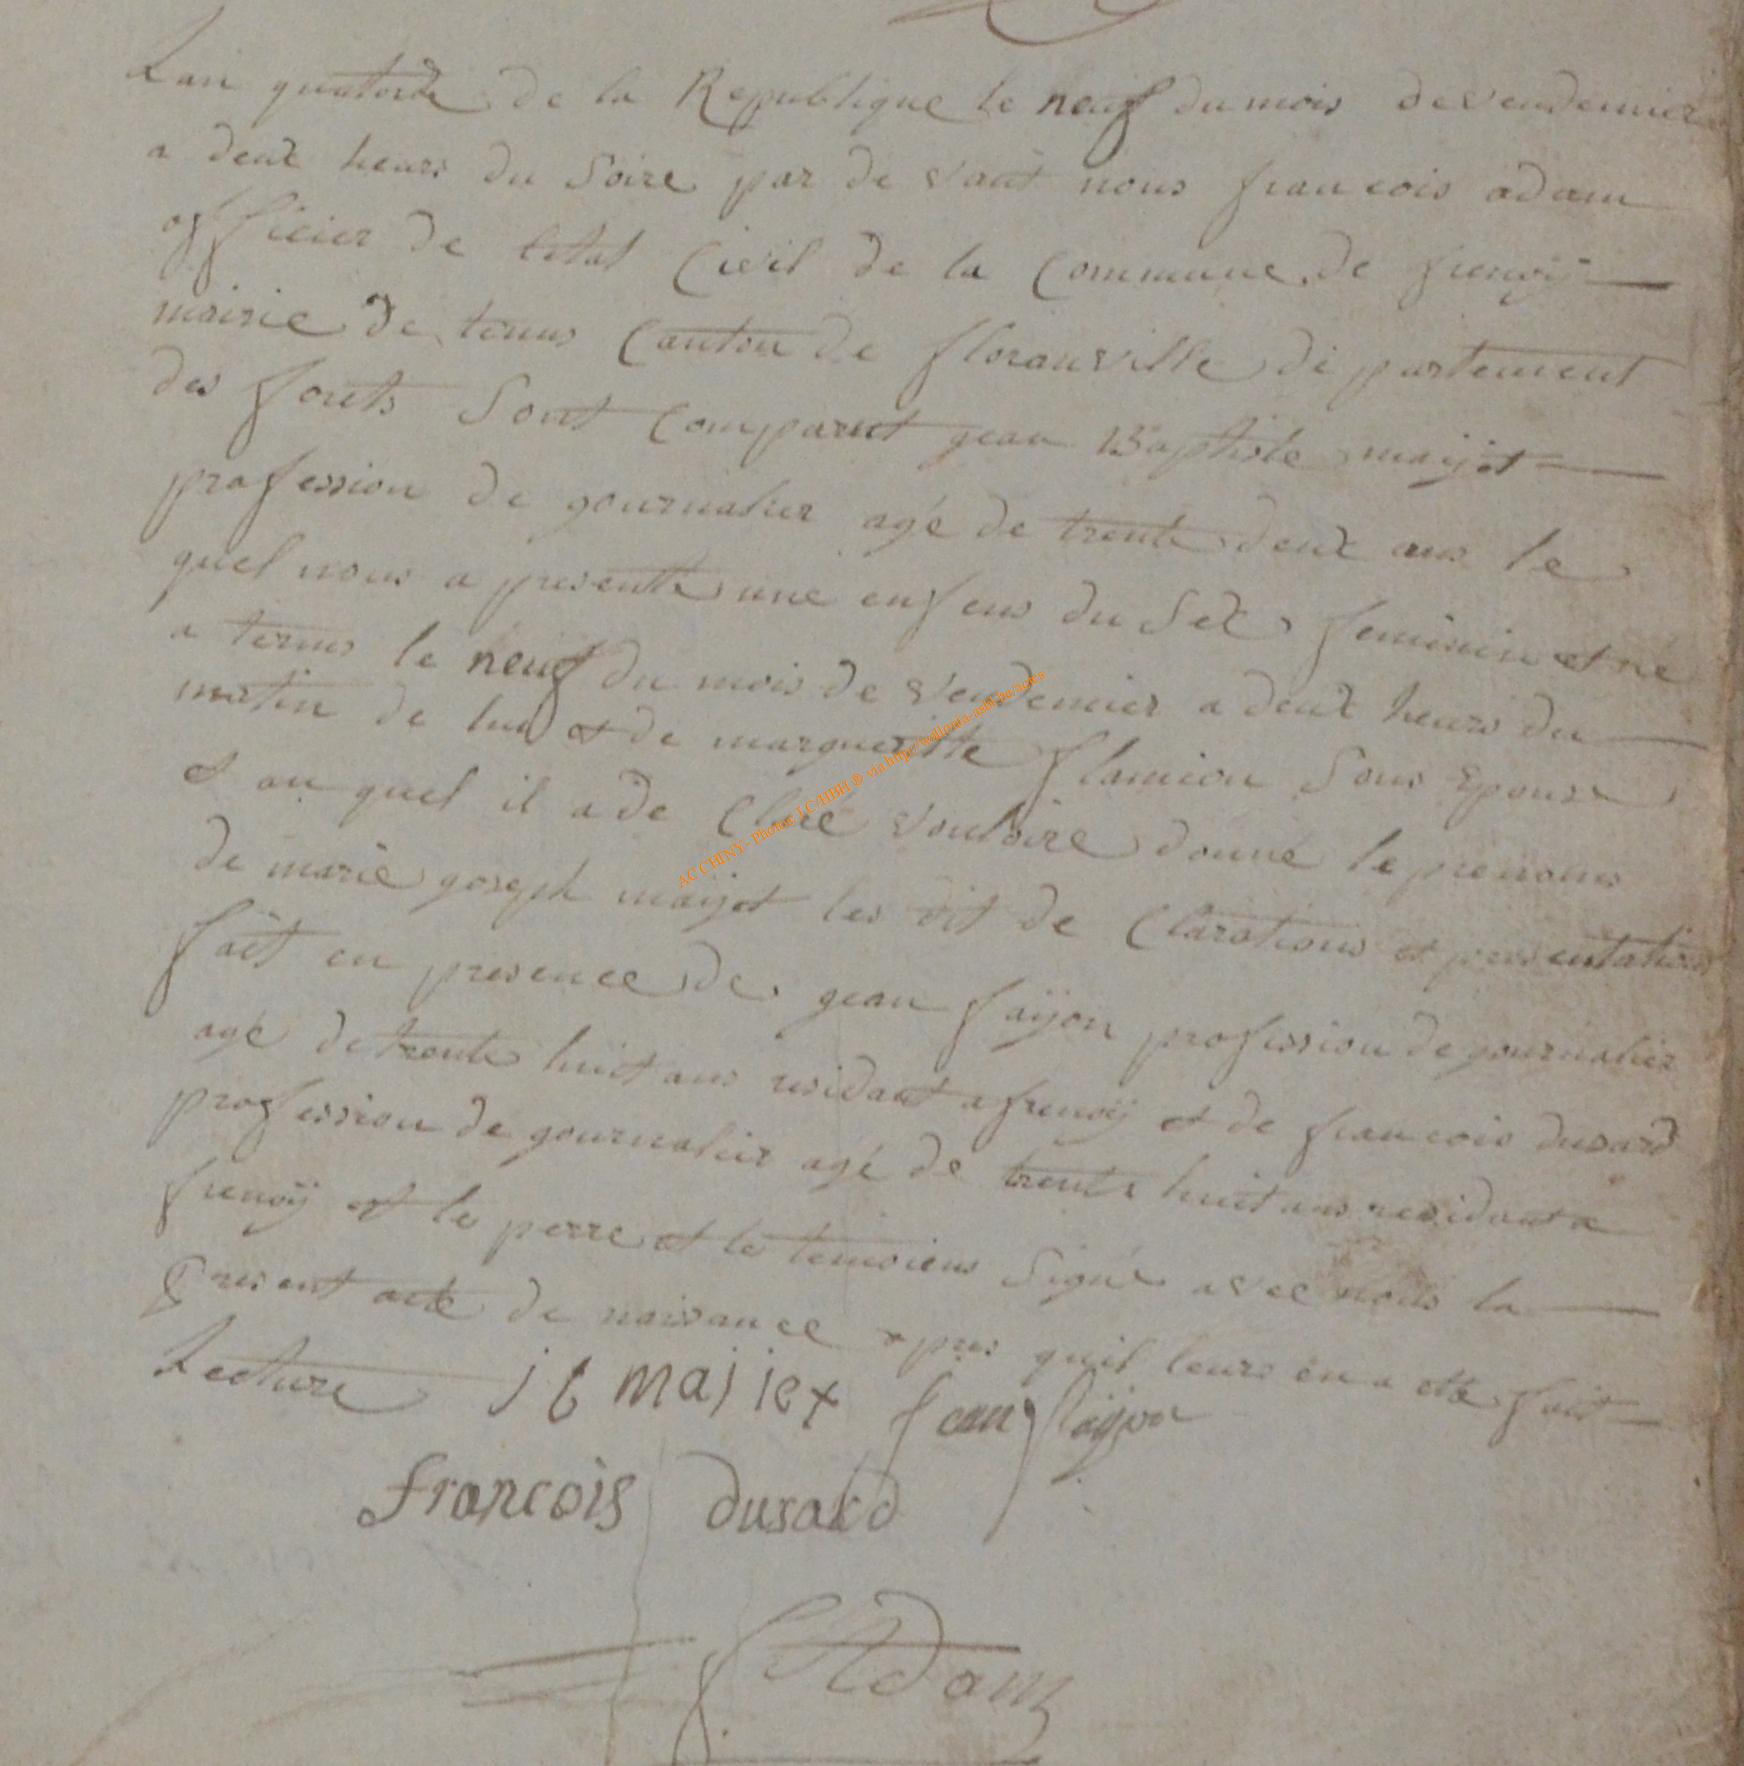 Lan quatorde de la Republique le neuf du mois de vendemier
a deux heurs du soire par de vant nous francois adam
officier de letat civil de la commune de frenoÿ
mairie de termes canton de floranville de partement
des forets sont comparut gean Baptiste maijet
profession de gournalier agé de trente deux ans le
quel nous a presente une enfens du sex feminin et né
a terme le neuf du mois de vendemier a deux heurs du
matin de lui et de margueritte flamion sous epouse
et au quel il a de claré vouloire donné le prenoms
de marie goseph maijet les dit de clarations et presentations
fait en presence de gean faÿon profession de gournalier
agé de trente huit ans residant a frenoÿ et de francois dusard
profession de gournalier agé de trente huit ans residant a
frenoÿ et le perre et le temoiens signé avec nous la
present acte de naissance apres quil leurs en a etté fait
Lecture j b majiet jean faÿon
francois dusard
f Adam
AC CHINY - Photos J.C/HBH ® via http://wallonia-asbl.be/actes